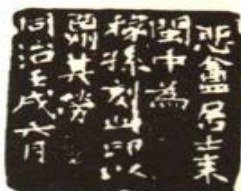 悲盦居士来
閩中為
稼孫刻此印以
酬其勞
同治壬戌六月